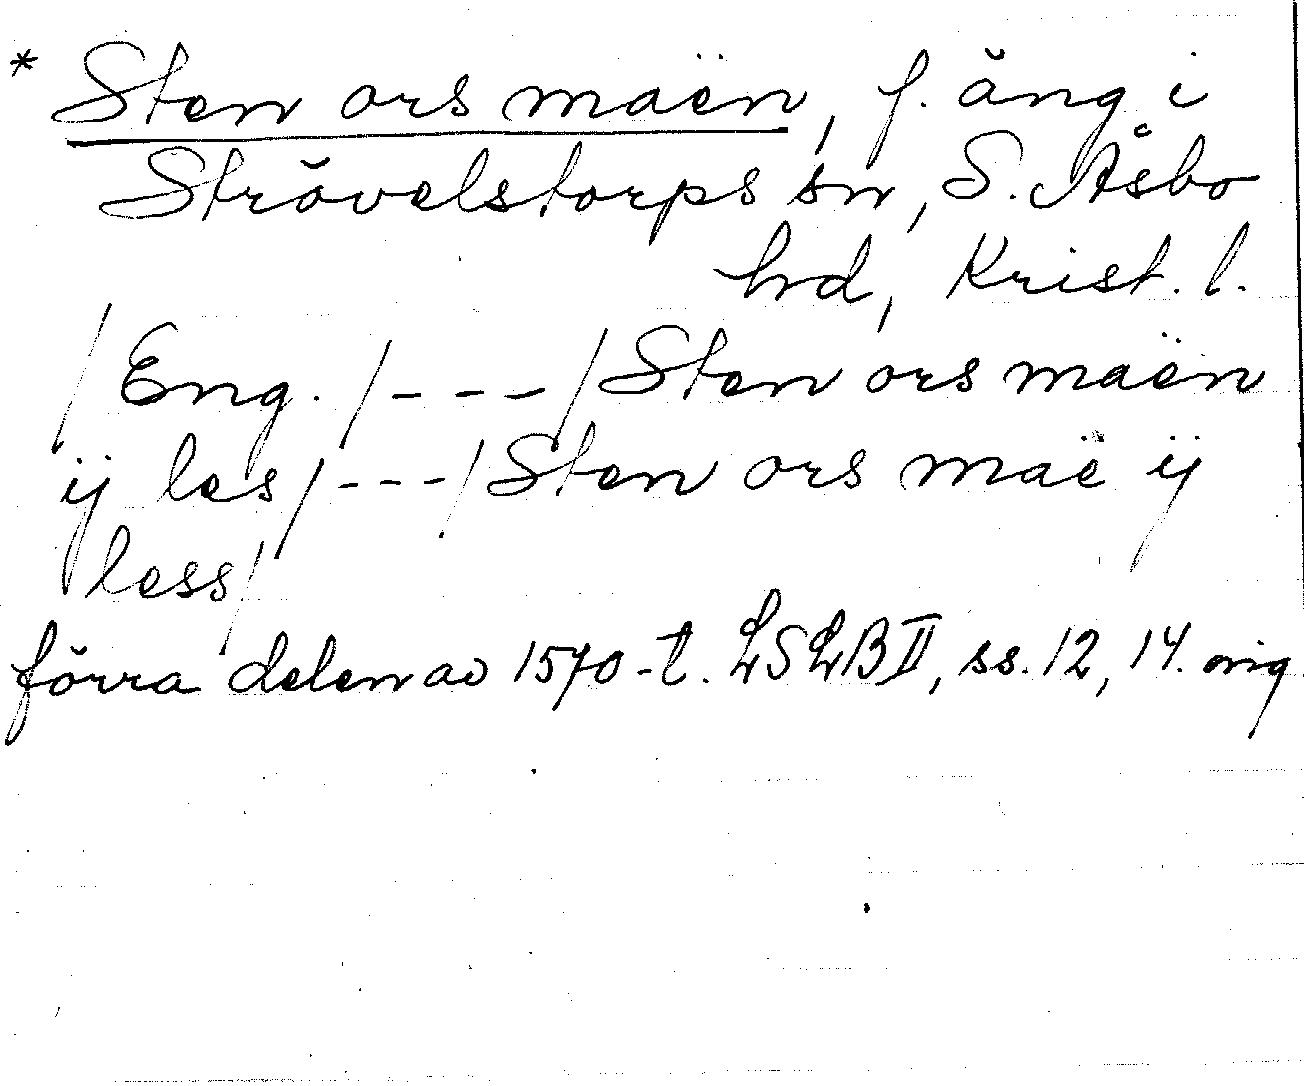 * Sten ors maën, f. äng i
Strövelstorps sn, S. Åsbo
hd, Krist. l.
/Eng./---/Sten ors maën
ij les/---/Sten ors maë ij
less/
förra delen av 1570-t. LSLB II, ss. 12, 14. orig